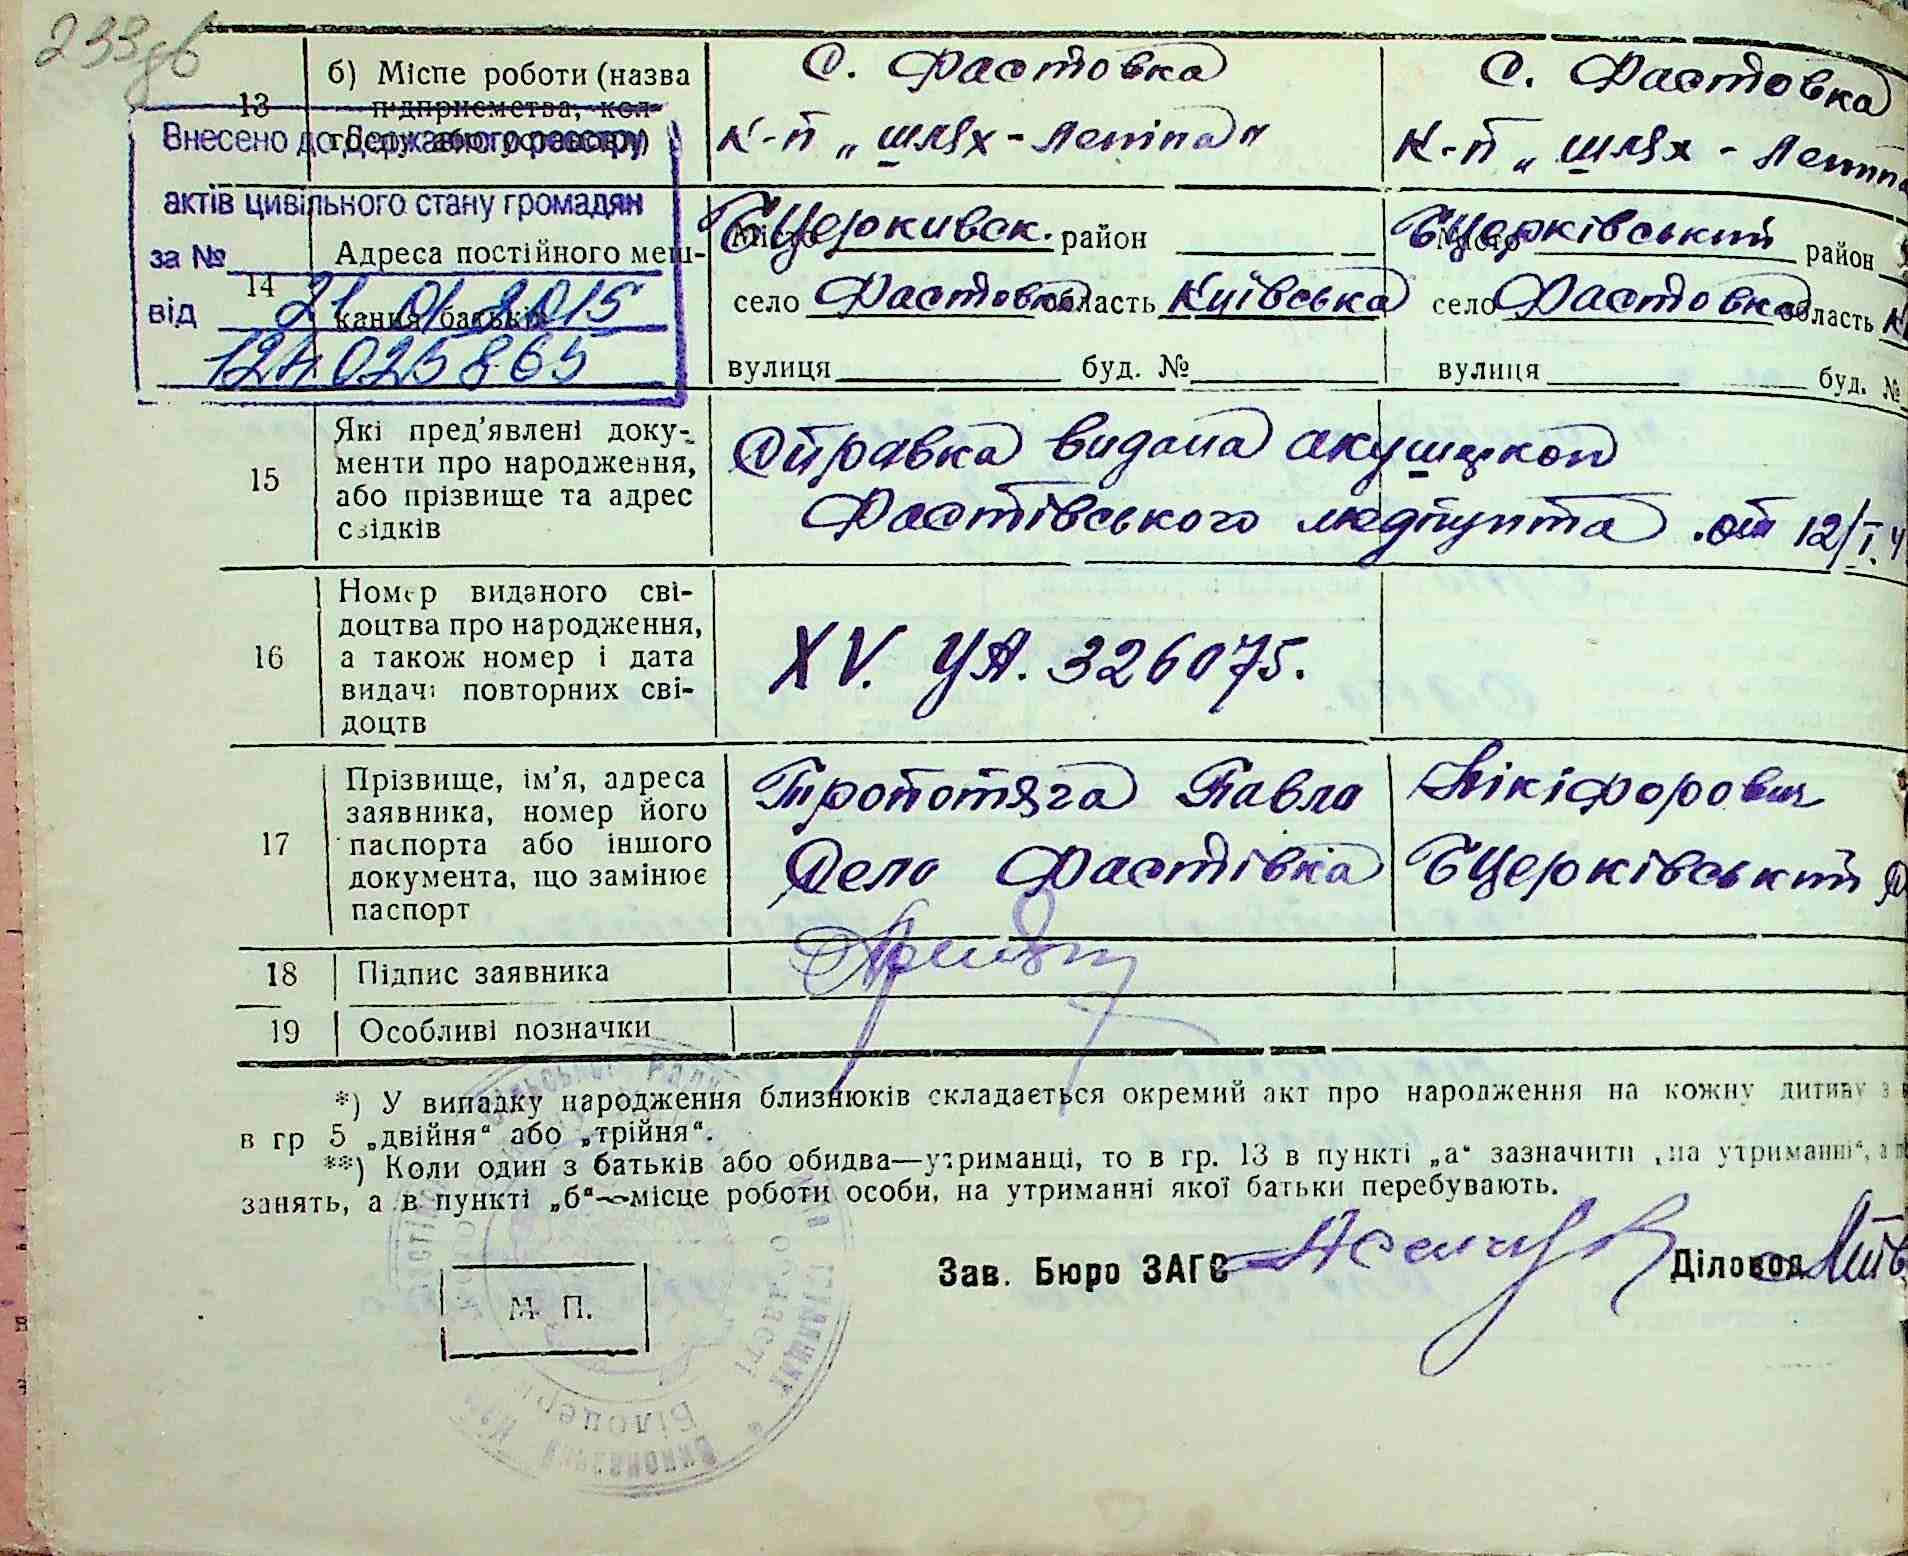 233
13 б) Місце роботи (назва С. Фастовка С. Фастовка
підприємства, кол-
К-п „шлях-Леніна“ К-п „шлях-Леніна
Внесено до Державного реєстру
актів цивільного стану громадян
за №
від 21 01 2015
025865
14 Адреса постійного меш-
кання батьків
Місто БЦеркивск. район Місто БЦерківський район
село Фастовка область Київська село Фастовка область
вулиця буд. № вулиця буд. №
15 Які пред’явлені доку-
менти про народження,
або прізвище та адрес
свідків
Справка видана акушеркой
Фастівського медпункта .от 12/I.
16 Номер виданого сві-
доцтва про народження,
а також номер і дата
видачі повторних сві-
доцтв
XV. УА. 326075.
17 Прізвище, ім’я, адреса
заявника, номер його
паспорта або іншого
документа, що замінює
паспорт
Тропотяга Павло Нікіфорович
Село Фастівка БЦерківський
18 Підпис заявника
19 Особливі позначки
*) У випадку народження близнюків складається окремий акт про народження на кожну дитину з
в гр 5 „двійня“ або „трійня“.
**) Коли один з батьків або обидва—утриманці, то в гр. 13 в пункті „а“ зазначити „на утриманні“, а
занять, а в пункті „б“—місце роботи особи, на утриманні якої батьки перебувають.
Зав. Бюро ЗАГС Діловод
М. П.